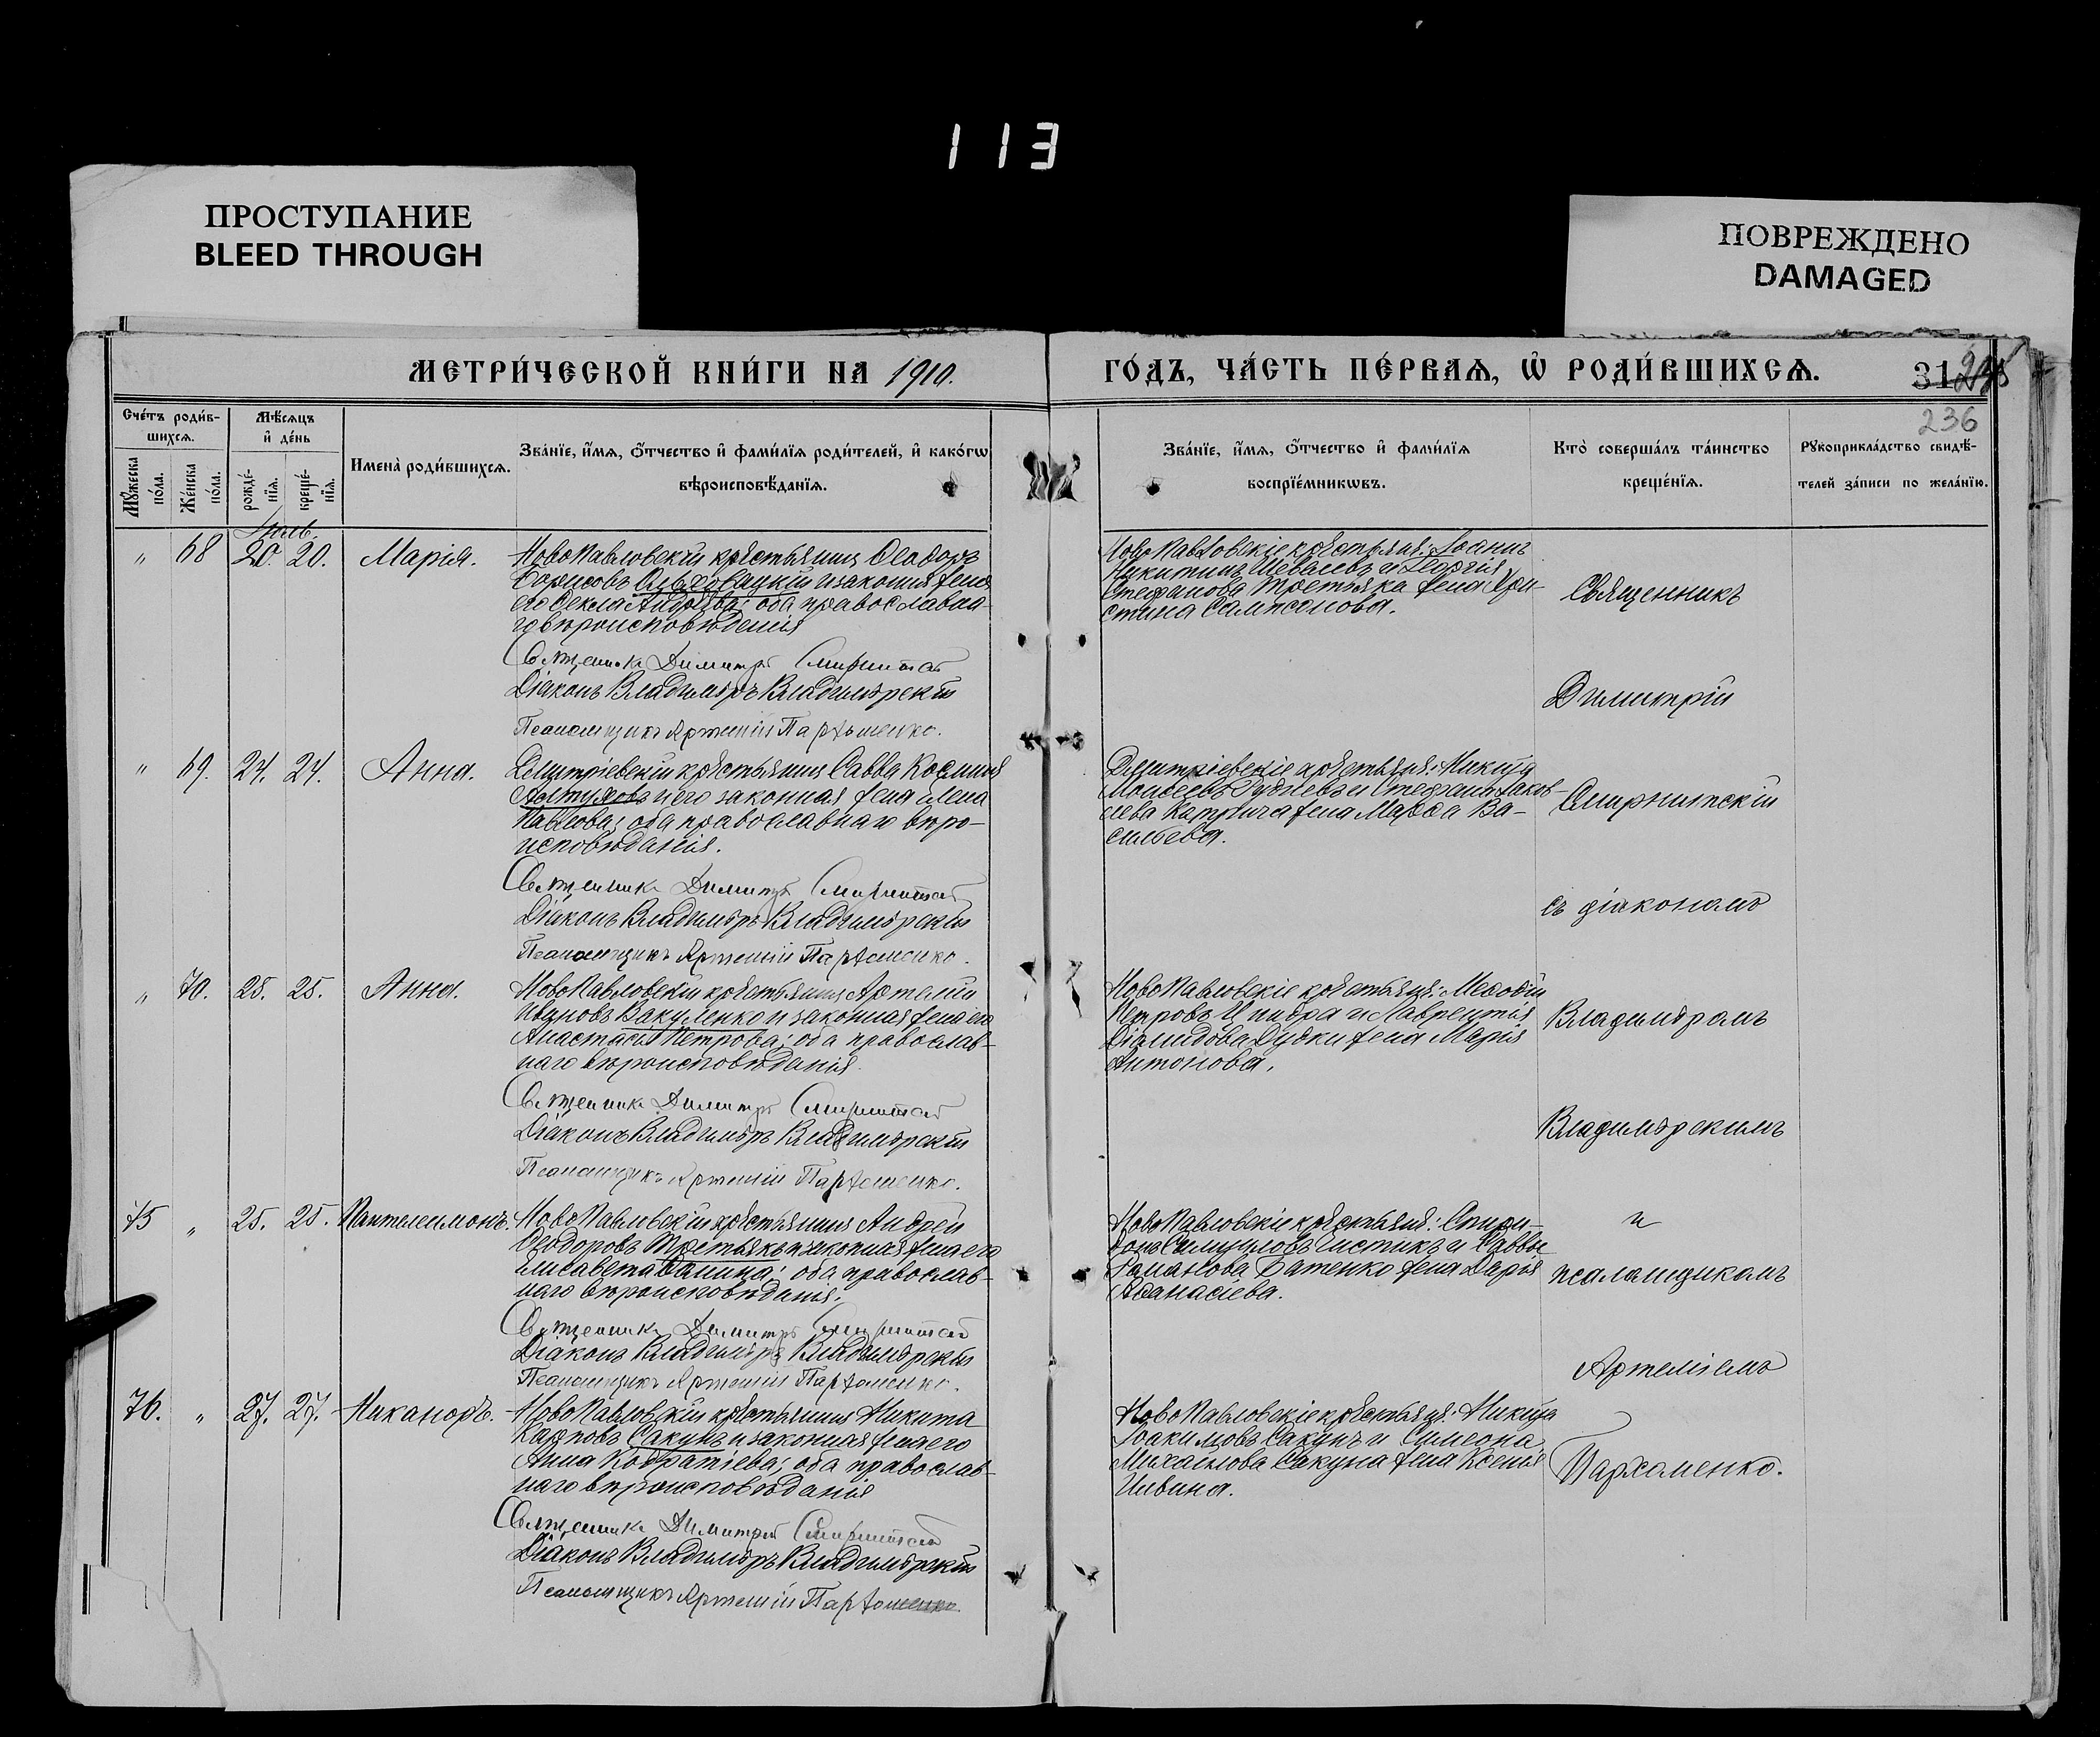 113
ПРОСТУПАНИЕ
BLEED THROUGH
ПОВРЕЖДЕНО
DAMAGED
МЕТРИ́ЧЕСКОЙ КНИ́ГИ НА 1910.
ГО́ДЪ, ЧА́СТЬ ПЕ́РВАѦ, Ѡ҆ РОДИ́ВШИХСѦ.
236
Сче́тъ роди́в-
шихсѧ.
Мѣ́сѧцъ
и҆ де́нь
Мꙋ́жеска
по́ла.
Же́нска
по́ла.
рожде́-
нїѧ.
креще́-
нїѧ.
Имена̀ роди́вшихсѧ.
Зва́нїе, и҆́мѧ, ѻ҆́тчество и҆ фами́лїѧ роди́телей, и҆ како́гѡ
вѣроисповѣ́данїѧ.
Зва́нїе, и҆́мѧ, ѻ҆́тчество и҆ фами́лїѧ
воспрїе́мникѡвъ.
Кто̀ соверша́лъ та́инство
креще́нїѧ.
Рꙋкоприкла́дство свидѣ́-
телей за́писи по жела́нїю.
Іюль.
" 68 20. 20. Марія.
НовоПавловскій крестьянинъ Ѳеодоръ
Борисовъ и законная жена
его Ѳекла Андреева; оба православна-
го вѣроисповѣданія
Священникъ Димитрій Смирнитскій
Діаконъ Владиміръ Владимірскій
Псаломщикъ Артемій Пархоменко.
НовоПавловскіе крестьяня: Іоаннъ
Никитинъ Шевалевъ и Георгія
Стефанова Третьяка жена Хри-
стина Сампсонова.
" 69. 24. 24. Анна.
Димитріевскій крестьянинъ Савва Косминъ
и его законная жена Елена
Павлова; оба православнаго вѣро-
исповѣданія.
Священникъ Димитрій Смирнитскій
Діаконъ Владиміръ Владимірскій
Псаломщикъ Артемій Пархоменко.
Димитріевскіе крестьяня: Никита
Моисеевъ и Стефана Яков-
лева жена Марѳа Ва-
сильева.
" 70. 25. 25. Анна.
НовоПавловскій крестьянинъ Артемій
Ивановъ Вакуленко и законная жена его
Анастасія Петрова; оба православ-
наго вѣроисповѣданія.
Священникъ Димитрій Смирнитскій
Діаконъ Владиміръ Владимірскій
Псаломщикъ Артемій Пархоменко.
НовоПавловскіе крестьяня: Меѳодій
Петровъ Цындра и Лаврентія
Діамидова Дудки жена Марія
Антонова.
75 " 25. 25. Пантелеимонъ.
НовоПавловскій крестьянинъ Андрей
Ѳеодоровъ Третьякъ и законная жена его
Елисавета Данилова; оба православ-
наго вѣроисповѣданія.
Священникъ Димитрій Смирнитскій
Діаконъ Владиміръ Владимірскій
Псаломщикъ Артемій Пархоменко.
НовоПавловскіе крестьяня: Спири-
донъ Чистикъ и Саввы
Романова Батенко жена Дарія
Аѳанасіева.
76. " 27. 27. Никаноръ.
НовоПавловскій крестьянинъ Никита
Карповъ Сакунъ и законная жена его
Анна Кодратіева; оба православ-
наго вѣроисповѣданія
Священникъ Димитрій Смирнитскій
Діаконъ Владиміръ Владимірскій
Псаломщикъ Артемій Пархоменко
НовоПавловскіе крестьяня: Никита
Іоакимовъ Сакунъ и Симеона
Михаилова Сакуна жена Ксенія
Ивина.
Священникъ
Димитрій
Смирнитскій
съ діакономъ
Владиміромъ
Владимірскимъ
и
псаломщикомъ
Артеміемъ
Пархоменко.